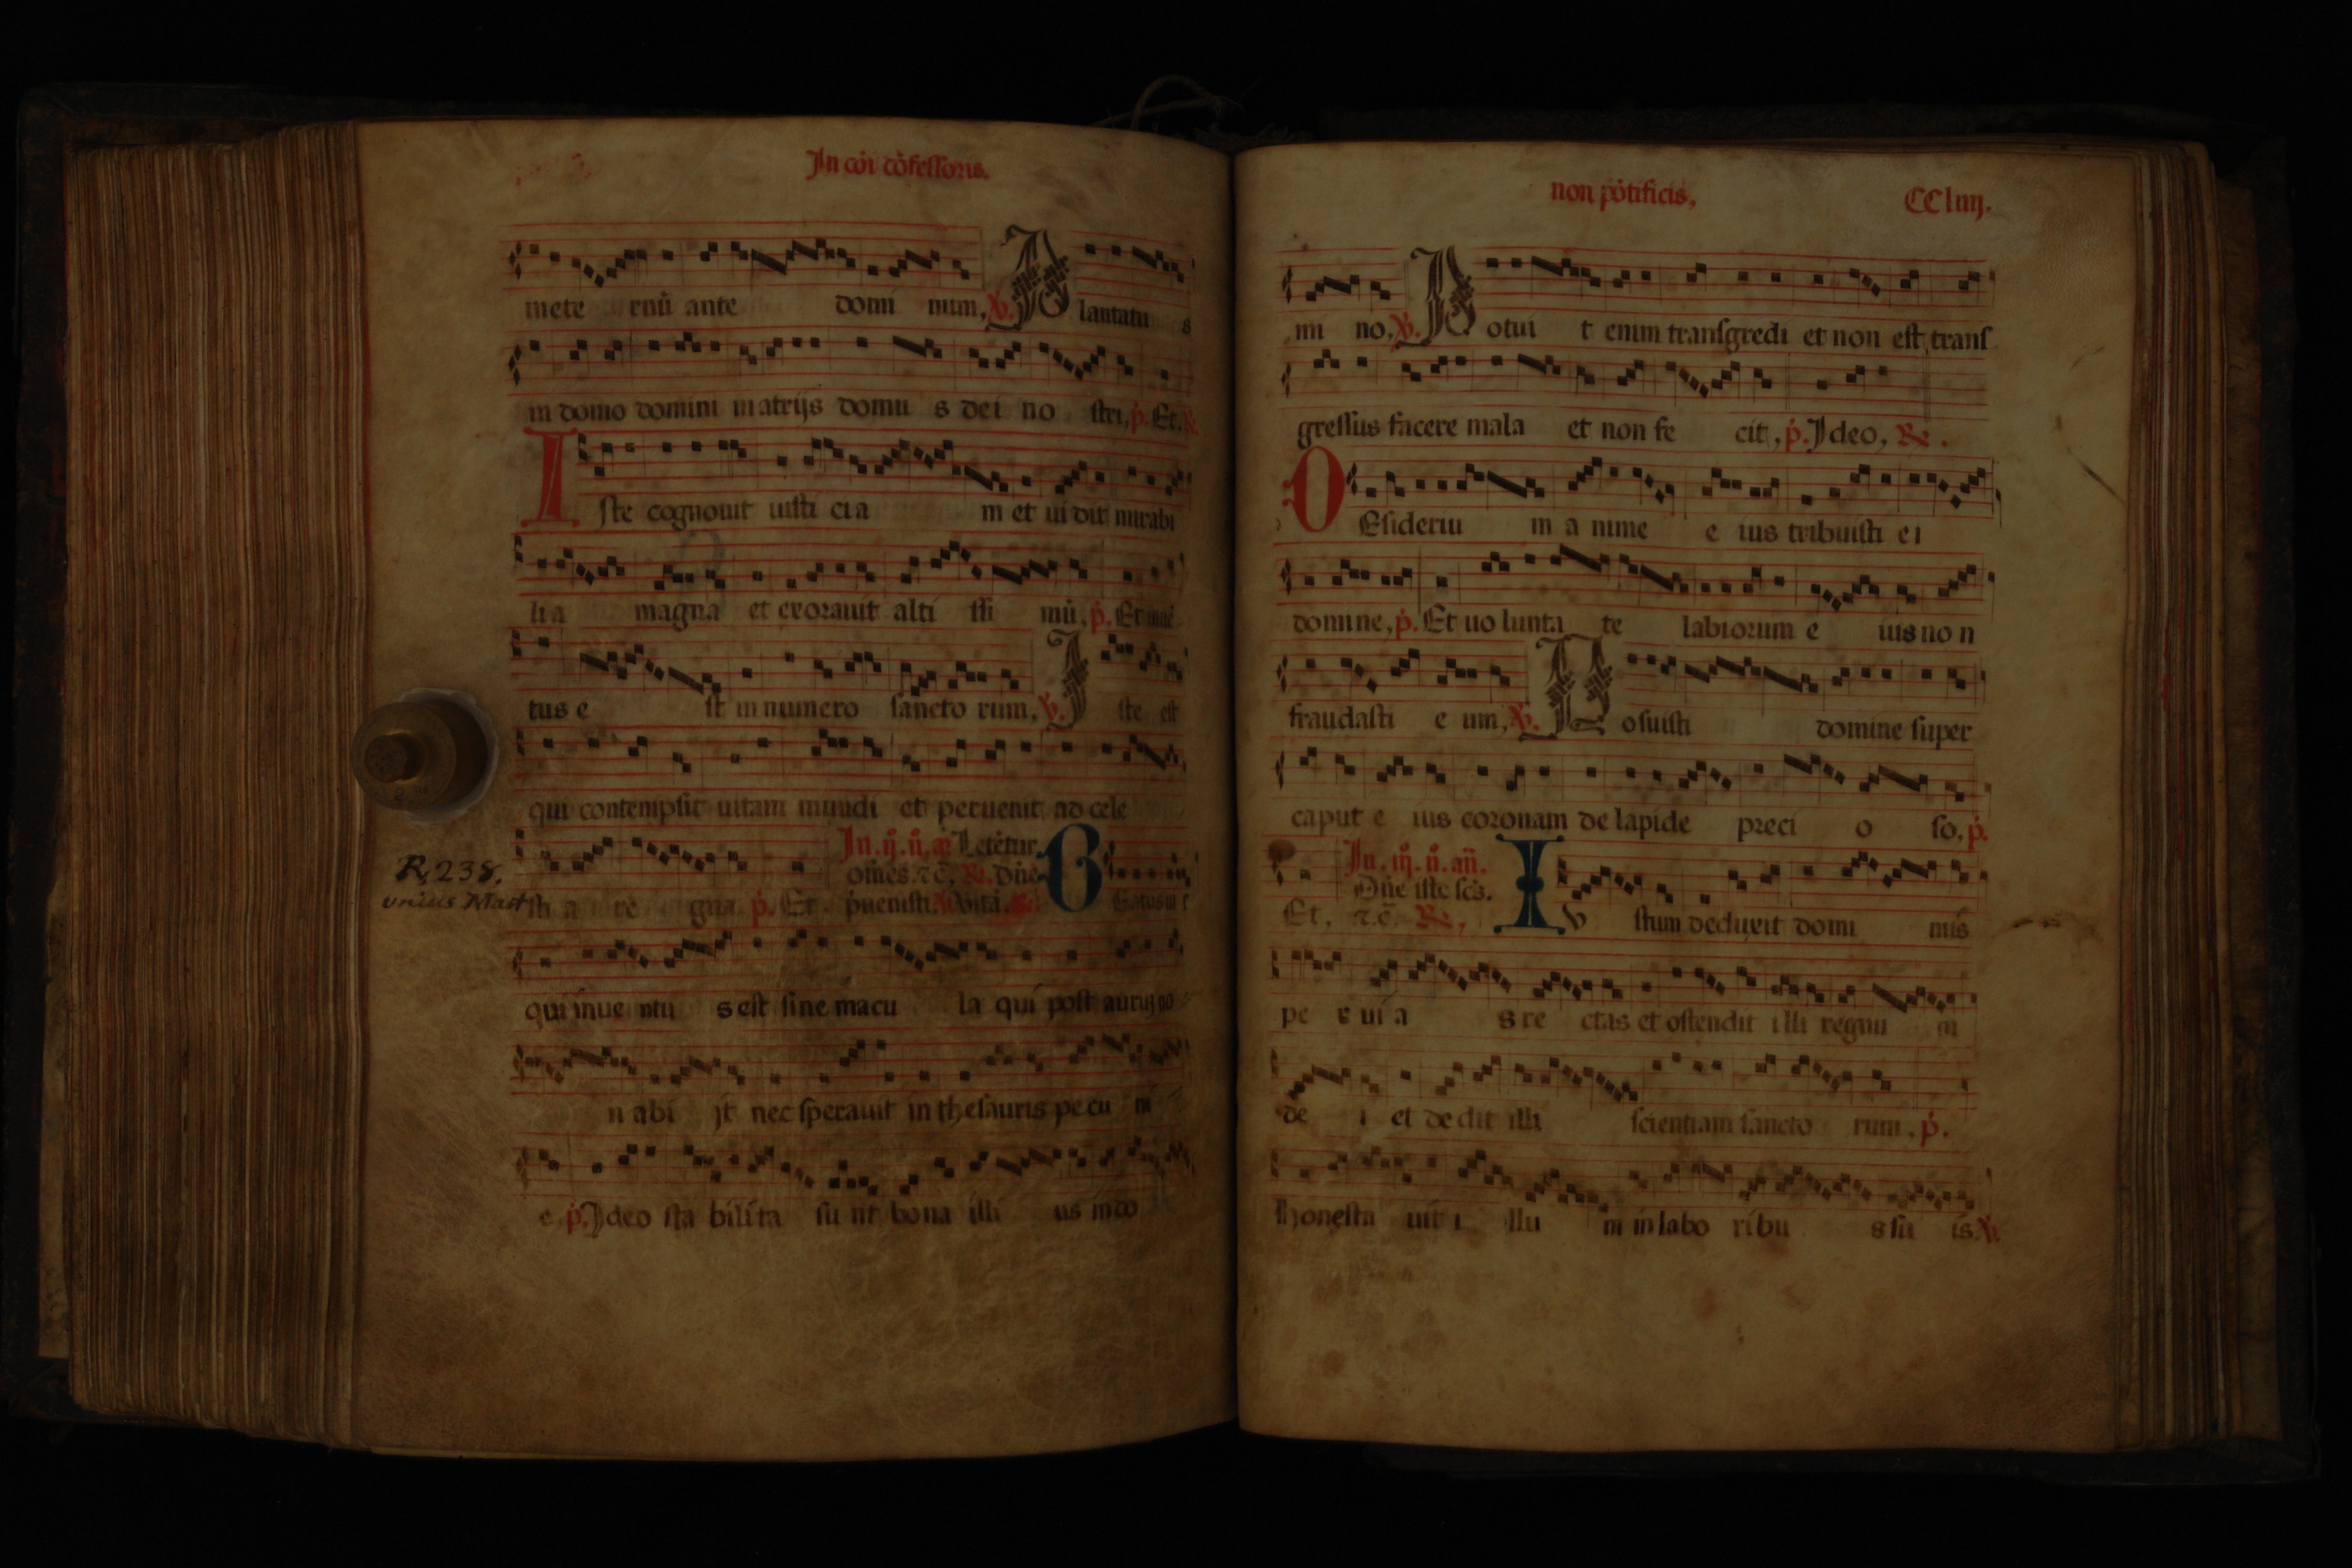 In cōi cōfessoris.
mete rnū ante domi num, ℣. Plantatu s
in domo domini in atrijs domu s dei no stri, p̄. Et. ℟.
Iste cognouit iusti cia m et ui dit mirabi
lia magna et exorauit alti ssi mū, p̄. Et inuē
tus e st in numero sancto rum, ℣. Iste est
qui contempsit uitam mundi et peruenit ad cele
In .ij. n̄. añ Letētur
om̄es. ⁊c̄, ℟. Dn̄e
R. 238.
unius Mart
sti a re gna p̄. Et. p̄uenisti. ℣. Vitā. ℟. Beatus uir
qui inue ntu s est sine macu la qui post auruȝ no
n abi jt nec sperauit in thesauris pecu ni
e, p̄. Ideo sta bilita su nt bona illi us in do
non pōtificis, CCliiij.
mi no, ℣. Potui t enim transgredi et non est trans
gressus facere mala et non fe cit, p̄. Ideo, ℟.
DEsideriu m a nime e ius tribuisti ei
domine, p̄. Et uo lunta te labiorum e ius no n
fraudasti e um, ℣. Posuisti domine super
caput e ius coronam de lapide preci o so, p̄.
In .iij. n̄. añ.
Dn̄e iste sc̄s.
Et. ⁊.c̄. ℟, Iustum deduxit domi nus
pe r ui a s re ctas et ostendit illi regnu m
de i et dedit illi scientiam sancto rum, p̄.
Honesta uit i llu m in labo ribu s su is. ℣.